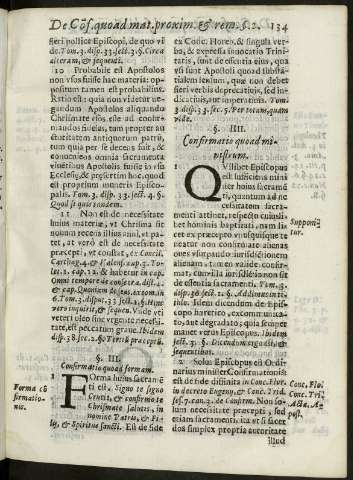 De Cōf. quoad mat. proxim. & rem. §. 2. 134
fieri pollice Episcopi, de quo vi
de. Tom. 3. disp. 33. sect. 3. §. Circa
alteram, & sequenti.
10 Probabile est Apostolos
non vsos fuisse hac materia: op-
positum tamen est probabilius.
Ratio est: quia non videtur ne-
gandum Apostolos aliquando
Chrismate esse ad confir-
mandos fideles, tum propter au
ctoritatem antiquorum patrũ,
tum quia per se decens fuit, &
conueniens omnia sacramenta
vberibus Apostolis fuisse in vsu
Ecclesiæ, & præsertim hoc, quod
est proprium muneris Episco-
palis. Tom. 3. disp. 33. sect. 4. §.
Quod si quis tandem.
11 Non est de necessitate
huius materiæ, vt Chrisma sit
quotannis recens illius anni, vt pa-
tet, at verò est de necessitate
præcepti, vt constat, ex Concil.
Carthag. 4. & Halens. cap. 3. To-
let. 1. cap. 12. & habetur in cap.
Omni tempore de consecra. dist. 4.
& cap. Quoniam de sent. excom. in
6. Tom. 3. disp. 33. sect. 2. §. Hinc
vero inquiri, & sequen. Vnde vti
veteri oleo sine vrgenti necessi-
tate, est peccatum graue. Ibidem
disp. 38. sec. 2. §. Tertiũ præceptũ.
§. III.
Confirmatio quoad formam.
Forma cō
firmatio-
nis.
Forma huius sacramẽ
ti est, Signo te signo
Crucis, & confirmo te
Chrismate salutis, in
nomine Patris, & Fi-
lij, & Spiritus sancti. Est de fide
ex Conc. Floren. & singula ver-
ba, & expressa inuocatio Trini-
tatis, sunt de essentia eius, qua
vsi sunt Apostoli quoad substã-
tialem sensum, quæ non debet
fieri verbis deprecatiuis, sed in-
dicatiuis, aut imperatiuis. Tom.
3. disp. 33. sec. 5. Per totam, quam
vide.
§. IIII.
Confirmatio quoad mi-
nistrum.
1 QVilibet Episcopus
est sufficiens mini
ster huius sacramẽ
ti, quantum ad ne
cessitatem sacra-
menti attinet, respectu cuiusli-
bet hominis baptizati, nam li-
cet ex præcepto vniusquisque te
neatur non confirmare alienos
oues vsurpando iurisdictionem
alienam, tamen valide confir-
mat, cum illa iurisdictio non sit
de essentia sacramenti. Tom. 3.
disp. 38. sect. 2. §. Addimus in ti-
bia. Idem dicendum de Episco-
po hæretico, excommunica-
to, aut degradato; quia semper
manet verus Episcopus. Ibidem
sect. 3. §. Dicendum ergo est; &
sequentibus.
Supponi-
tur.
2 Solus Episcopus est Ordi-
narius minister Confirmationis
est de fide diffinita in Conc. Flor.
in decreto Eugeny, & Conc. Trid.
sess. 7. can. 3. de Confirm. Non so-
lum necessitate præcepti, sed
etiam sacramenti, ita vt si sacer
dos simplex propria autoritate
Conc. Flo.
Conc. Tri.
Acta. A-
post.
illud